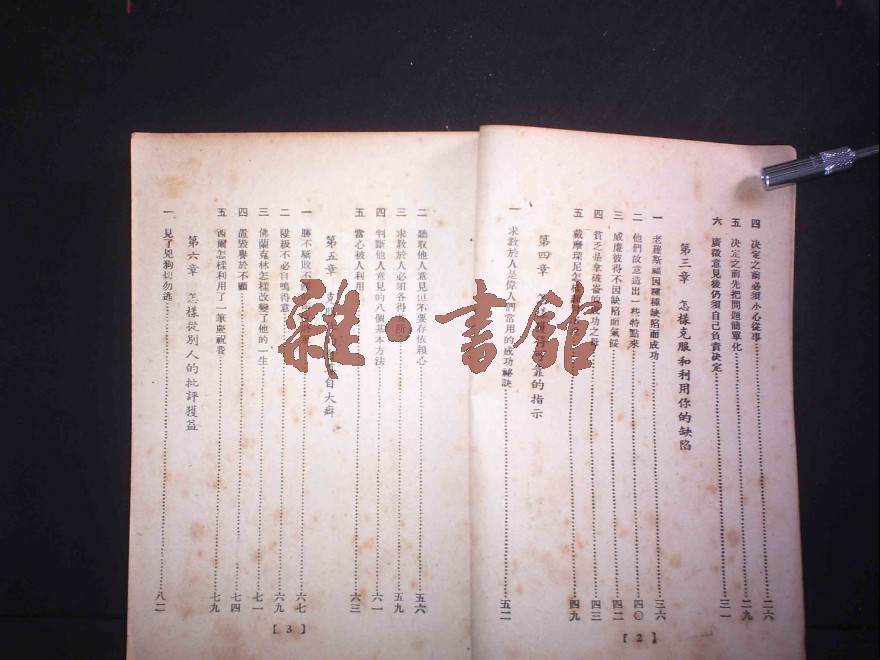 四　決定之前必須小心從事……二六
五　決定之前先把問題簡單化……二九
六　廣徵意見後仍須自己負責決定……三一
第三章　怎樣克服和利用你的缺陷
一　老羅斯福因種種缺陷而成功……三六
二　他們故意造出一些特點來……四〇
三　威廉彼得不因缺陷而氣餒……四二
四　貧乏是拿破崙的成功之母……四三
五　戴摩瑅尼怎樣……四九
第四章　怎樣　得可靠的指示
一　求教於人是偉人們常用的成功祕訣……五二
【2】
二　聽取他人意見但不要存依賴心……五六
三　求教於人必須各得其所……五九
四　判斷他人意見的八個基本方法……六一
五　當心被人利用……六三
第五章　克服　自　自大癖
一　勝不驕敗不……六七
二　陞級不必自鳴得意……六九
三　佛蘭克林怎樣改變了他的一生……七一
四　置毀譽於不顧……七四
五　西爾怎樣利用了一筆慶祝費……七九
第六章　怎樣從別人的批評獲益
一　見了兇狗切勿逃……八二
【3】
雜・書館